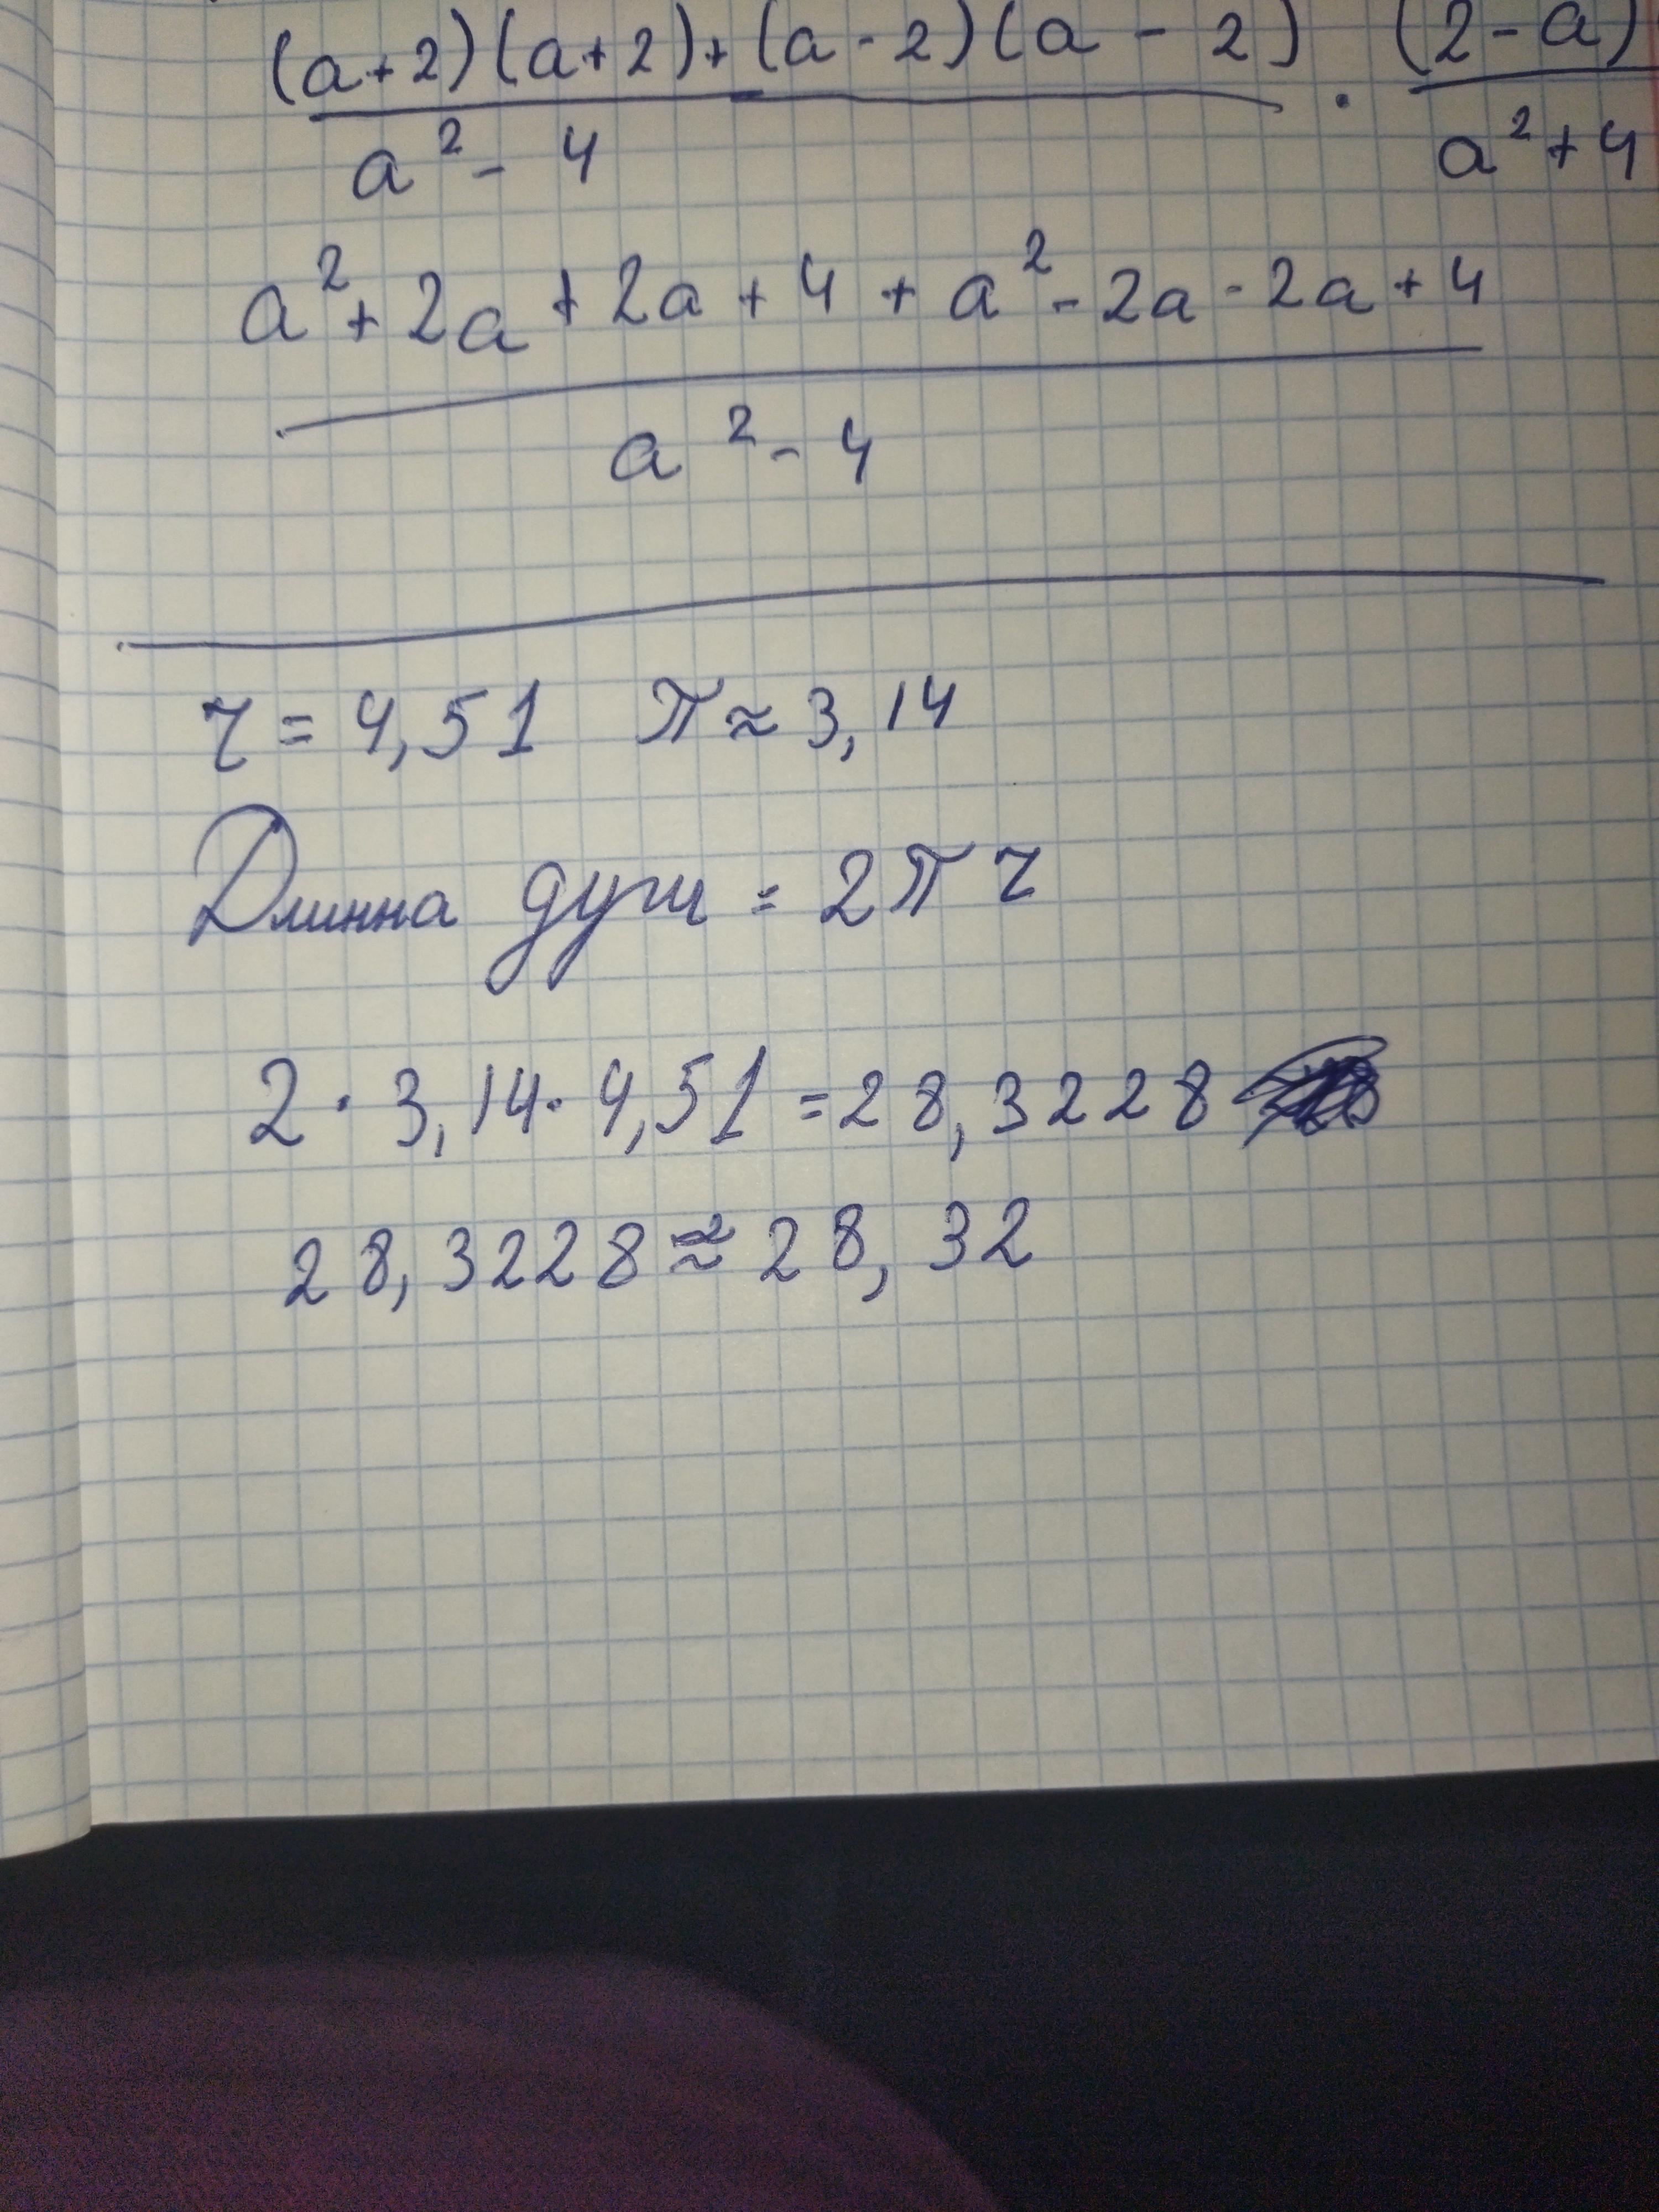 (a+2)(a+2)+(a-2)(a-2) · (2-a)
a²-4 a²+4
a²+2a+2a+4+a²-2a-2a+4
a²-4
r=4,51 π≈3,14
Длинна дуги=2πr
2·3,14·4,51=28,3228
28,3228≈28,32